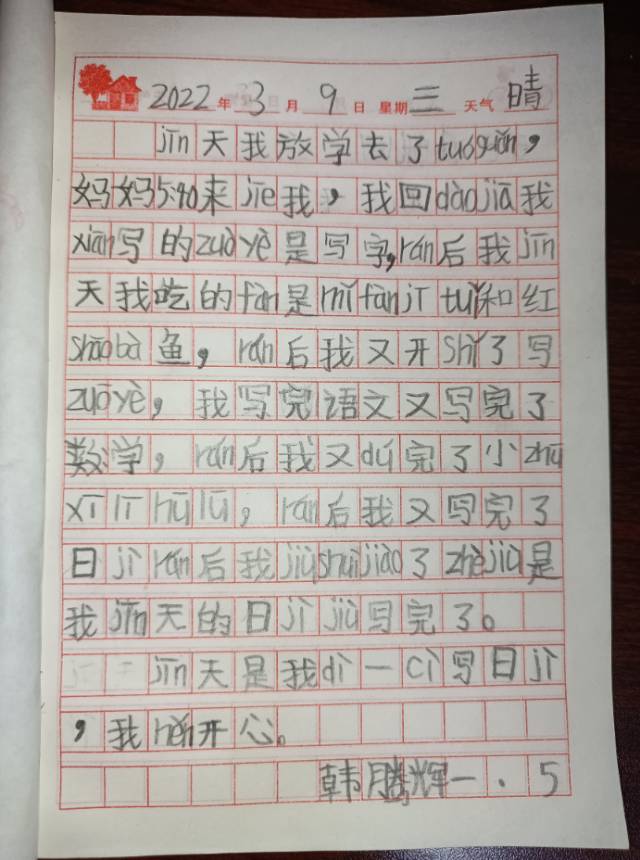 2022年3月9日 星期三 天气晴
jīn天我放学去了tuóguǎn，
妈妈5:40来jiē我，我回dàojiā我
xiān写的zuòyè是写字,rán后我jīn
天我吃的fàn是mǐfànjī tuǐ和红
shāobà鱼，rán后我又开shǐ了写
zuōyè，我写完语文又写完了
数学，rán后我又dú完了小zhū
xī lī hū lū，rán后我又写完了
日jì rán后我jiùshuìjiào了zhèjiù是
我jīn天的日jì jiù写完了。
jīn天是我dì一cì写日jì
，我hěn开心。
韩腾辉一.5